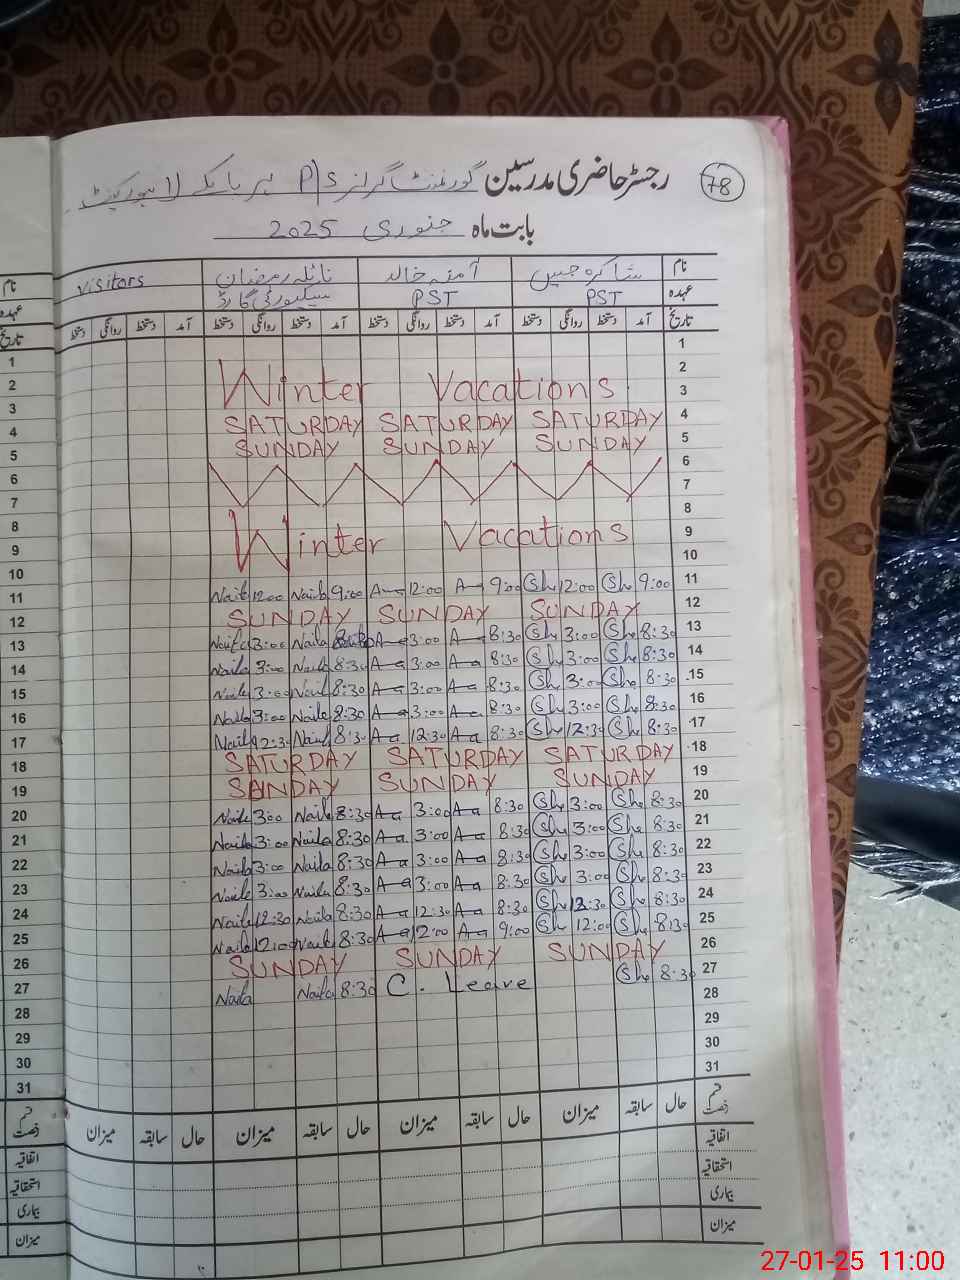 78
رجسٹر حاضری مدرسین گورنمنٹ گرلز P/S
بابت ماہ جنوری 2025
نام شاکرہ جبیں آمنہ خالد نائلہ رمضان Visitors نام
عہدہ PST PST سیکیورٹی گارڈ عہدہ
تاریخ آمد دستخط روانگی دستخط آمد دستخط روانگی دستخط آمد دستخط روانگی دستخط آمد دستخط روانگی دستخط تاریخ
1 1
2 2
Winter Vacations 3 3
4 SATURDAY SATURDAY SATURDAY 4
5 SUNDAY SUNDAY SUNDAY 5
6 6
7 7
8 8
9 Winter Vacations 9
10 10
11 Naila 12:00 Naila 9:00 A—a 12:00 A—a 9:00 Sh 12:00 Sh 9:00 11
12 SUNDAY SUNDAY SUNDAY 12
13 Naila 3:00 Naila A—a 3:00 A—a 8:30 Sh 3:00 Sh 8:30 13
14 Naila 3:00 Naila 8:30 A—a 3:00 A—a 8:30 Sh 3:00 Sh 8:30 14
15 Naila 3:00 Naila 8:30 A—a 3:00 A—a 8:30 Sh 3:00 Sh 8:30 15
16 Naila 3:00 Naila 8:30 A—a 3:00 A—a 8:30 Sh 3:00 Sh 8:30 16
17 Naila 12:30 Naila 8:30 A—a 12:30 A—a 8:30 Sh 12:30 Sh 8:30 17
18 SATURDAY SATURDAY SATURDAY 18
19 SUNDAY SUNDAY SUNDAY 19
20 Naila 3:00 Naila 8:30 A—a 3:00 A—a 8:30 Sh 3:00 Sh 8:30 20
21 Naila 3:00 Naila 8:30 A—a 3:00 A—a 8:30 Sh 3:00 Sh 8:30 21
22 Naila 3:00 Naila 8:30 A—a 3:00 A—a 8:30 Sh 3:00 Sh 8:30 22
23 Naila 3:00 Naila 8:30 A—a 3:00 A—a 8:30 Sh 3:00 Sh 8:30 23
24 Naila 12:30 Naila 8:30 A—a 12:30 A—a 8:30 Sh 12:30 Sh 8:30 24
25 Naila 12:00 Naila 8:30 A—a 12:00 A—a 9:00 Sh 12:00 Sh 8:30 25
26 SUNDAY SUNDAY SUNDAY 26
27 Naila Naila 8:30 C. Leave Sh 8:30 27
28 28
29 29
30 30
31 31
قسم رخصت حال سابقہ میزان حال سابقہ میزان حال سابقہ میزان حال سابقہ میزان قسم رخصت
اتفاقیہ اتفاقیہ
استحقاقیہ استحقاقیہ
بیماری بیماری
میزان میزان
27-01-25 11:00